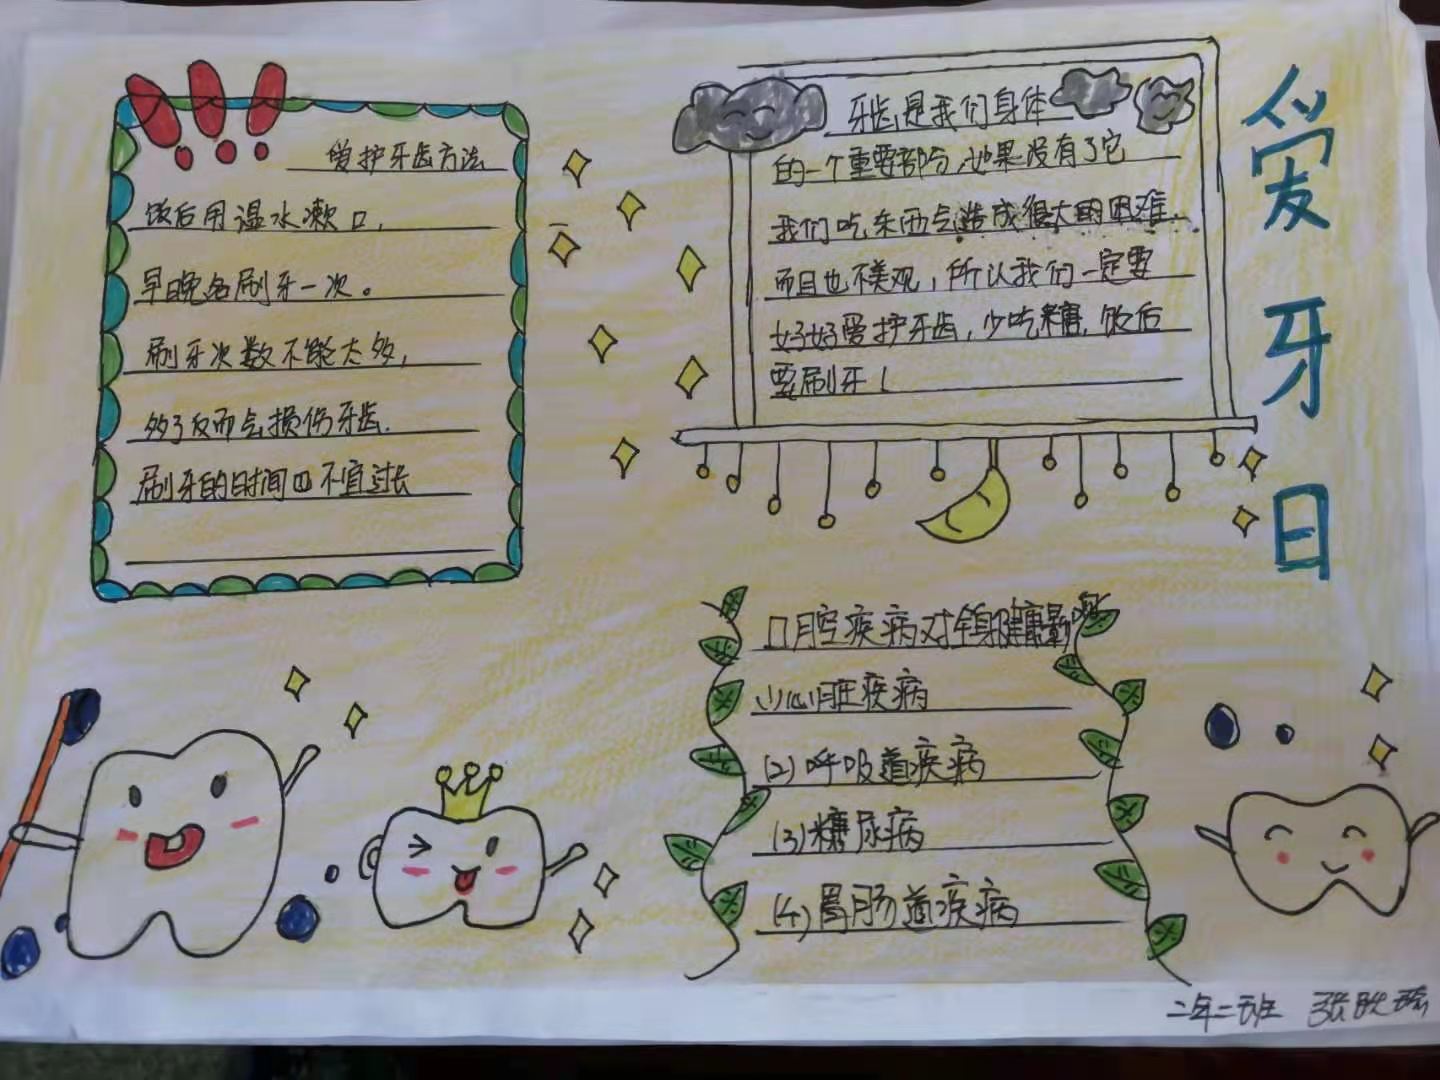 爱牙日
爱护牙齿方法
饭后用温水漱口,
早晚各刷牙一次。
刷牙次数不能太多,
多了反而会损伤牙齿.
刷牙的时间也不宜过长
牙齿是我们身体
的一个重要部分,如果没有了它
我们吃东西会造成很大的困难,
而且也不美观,所以我们一定要
好好爱护牙齿,少吃糖,饭后
要刷牙!
口腔疾病对全身健康影响
(1)心脏疾病
(2)呼吸道疾病
(3)糖尿病
(4)胃肠道疾病
二年二班 张